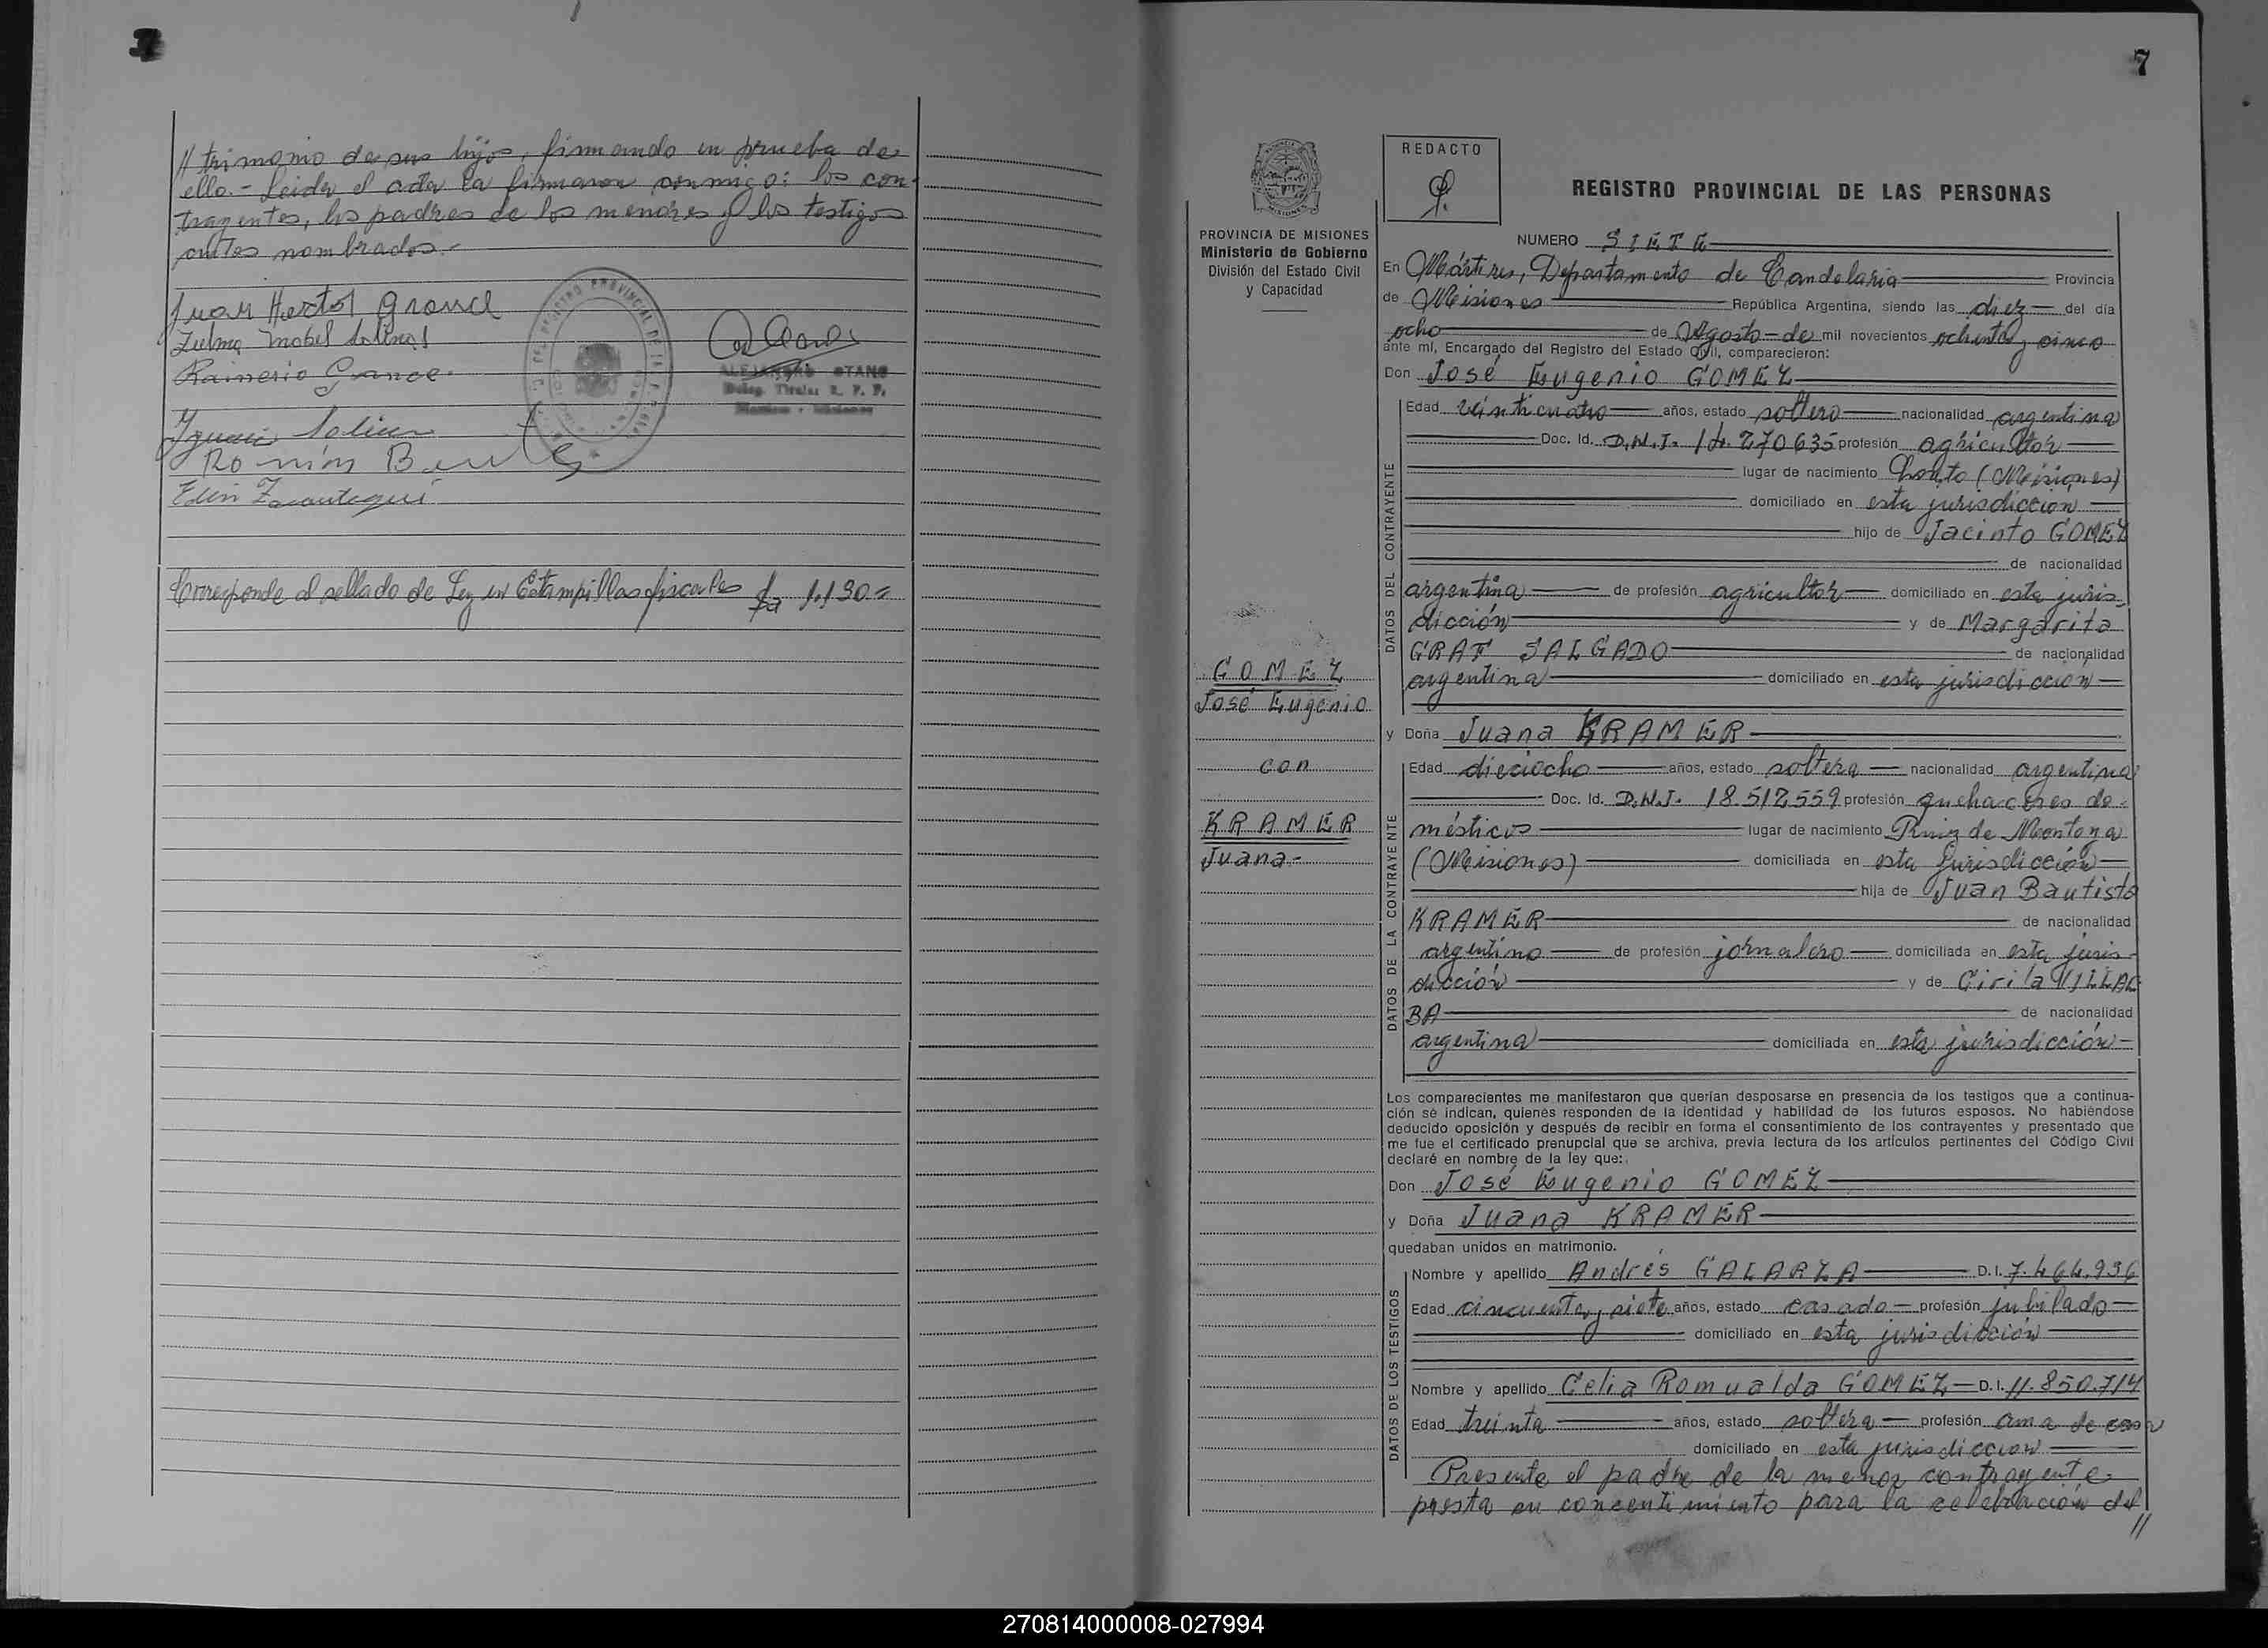 // trimonio de sus hijos, firmando en prueba de
ello.- Leida el acta la firmaron conmigo: los con-
trayentes, los padres de los menores y los testigos
antes nombrados.-
Juan Hector Grance
Zulma Mabel Salinas
Rainerio Grance.
Ignacio Salinas
Román
ALEJANDRO OTANO
Deleg. Titular R. P. P.
Martires - Misiones
Corresponde al sellado de Ley en Estampillas fiscales $a 1.130=
7
PROVINCIA DE MISIONES
Ministerio de Gobierno
División del Estado Civil
y Capacidad
GOMEZ
José Eugenio
con
KRAMER
Juana-
REDACTO
REGISTRO PROVINCIAL DE LAS PERSONAS
NUMERO SIETE
En Mártires, Departamento de Candelaria Provincia
de Misiones República Argentina, siendo las diez del día
ocho de Agosto de mil novecientos ochenta y cinco
ante mí, Encargado del Registro del Estado Civil, comparecieron:
Don José Eugenio GOMEZ
DATOS DEL CONTRAYENTE
Edad veinticuatro años, estado soltero nacionalidad argentina
Doc. Id. D.N.I. 14.270635 profesión agricultor
lugar de nacimiento Loreto (Misiones)
domiciliado en esta jurisdicción
hijo de Jacinto GOMEZ
de nacionalidad
argentina de profesión agricultor domiciliado en esta juris-
dicción y de Margarita
GRAF SALGADO de nacionalidad
argentina domiciliado en esta jurisdicción
y Doña Juana KRAMER
DATOS DE LA CONTRAYENTE
Edad dieciocho años, estado soltera nacionalidad argentina
Doc. Id. D.N.I. 18.512559 profesión quehaceres do-
mésticos lugar de nacimiento Ruiz de Montoya
(Misiones) domiciliada en esta Jurisdicción
hija de Juan Bautista
KRAMER de nacionalidad
argentino de profesión jornalero domiciliada en esta juris-
dicción y de Cirila VILLAL
BA de nacionalidad
argentina domiciliada en esta jurisdicción
Los comparecientes me manifestaron que querían desposarse en presencia de los testigos que a continua-
ción se indican, quienes responden de la identidad y habilidad de los futuros esposos. No habiéndose
deducido oposición y después de recibir en forma el consentimiento de los contrayentes y presentado que
me fue el certificado prenupcial que se archiva, previa lectura de los artículos pertinentes del Código Civil
declaré en nombre de la ley que:
Don José Eugenio GOMEZ
y Doña Juana KRAMER
quedaban unidos en matrimonio.
DATOS DE LOS TESTIGOS
Nombre y apellido Andrés GALARZA D.I. 7.464.936
Edad cincuenta y siete años, estado casado profesión jubilado
domiciliado en esta jurisdicción
Nombre y apellido Celia Romualda GOMEZ D.I. 11.850.714
Edad treinta años, estado soltera profesión ama de casa
domiciliado en esta jurisdicción
Presente el padre de la menor contrayente
presta su concentimiento para la celebración del
//
270814000008-027994